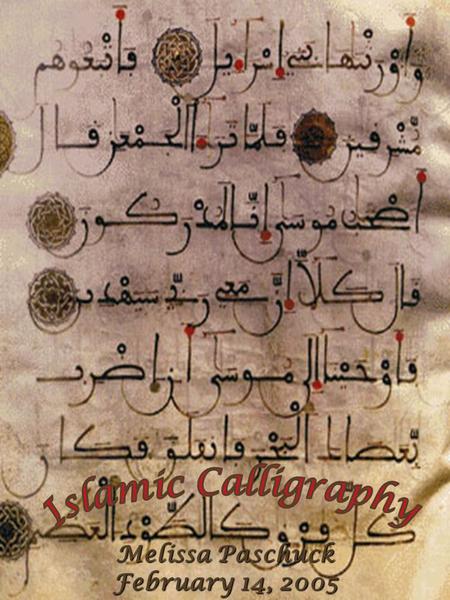 وأورثنها بني إسرءيل فأتبعوهم
مشرقين فلما ترا الجمعن قال
أصحب موسى إنا لمدركون
قال كلا إن معي ربي سيهدين
فأوحينا إلى موسى أن اضرب
بعصاك البحر فانفلق فكان
كل فرق كالطود العظيم
Islamic Calligraphy
Melissa Paschuck
February 14, 2005